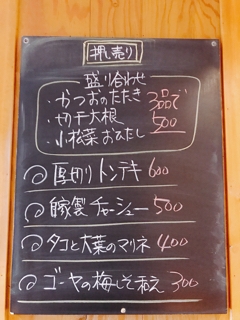 押し売り
盛り合わせ
・かつおのたたき 3品で
・切干大根 500
・小松菜おひたし
◎厚切りトンテキ 600
◎自家製チャーシュー 500
◎タコと大葉のマリネ 400
◎ゴーヤの梅しそ和え 300